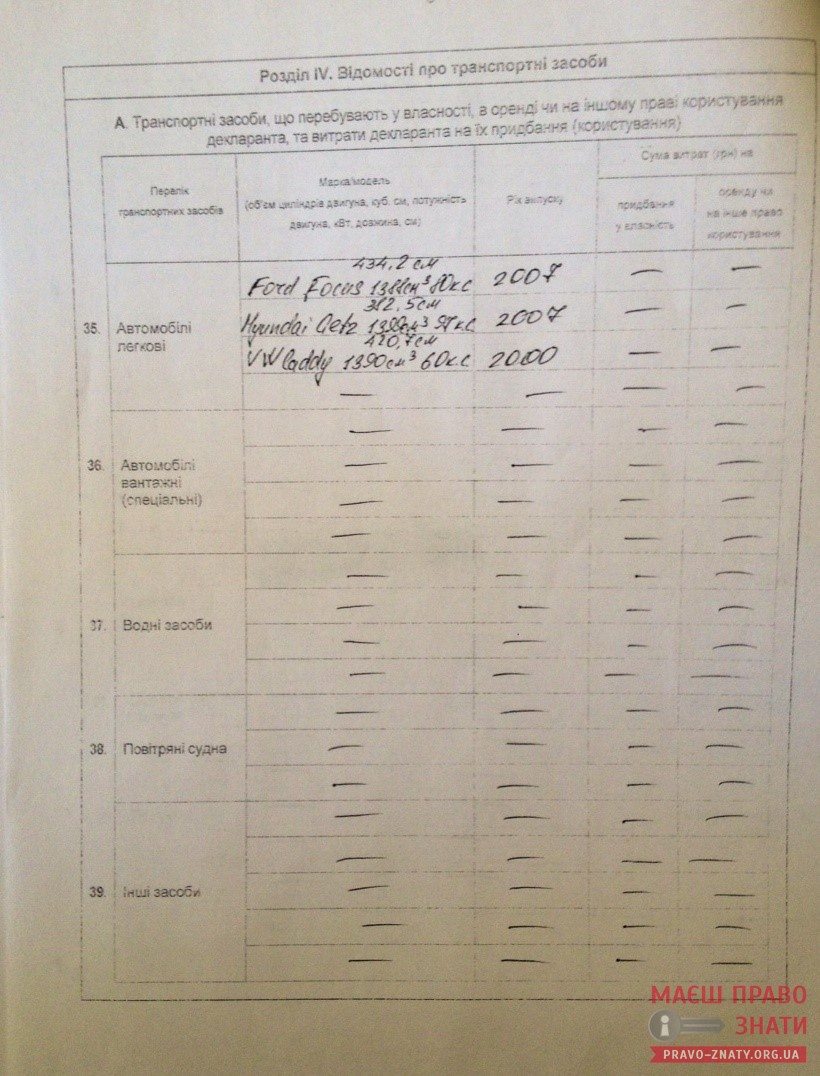 Розділ IV. Відомості про транспортні засоби
А. Транспортні засоби, що перебувають у власності, в оренді чи на іншому праві користування
декларанта, та витрати декларанта на їх придбання (користування)
Перелік
транспортних засобів
Марка/модель
(об'єм циліндрів двигуна, куб. см, потужність
двигуна, кВт, довжина, см)
Рік випуску
Сума витрат (грн) на
придбання
у власність
оренду чи
на інше право
користування
35. Автомобілі
легкові
434,2 см
Ford Focus 1388см³ 80кс 2007 — —
382,5см
Hyundai Getz 1399см³ 97кс 2007 — —
420,7см
VW Caddy 1390см³ 60кс 2000 — —
— — — —
36. Автомобілі
вантажні
(спеціальні)
— — — —
— — — —
— — — —
— — — —
37. Водні засоби
— — — —
— — — —
— — — —
— — — —
38. Повітряні судна
— — — —
— — — —
— — — —
39. Інші засоби
— — — —
— — — —
— — — —
— — — —
— — — —
МАЄШ ПРАВО
ЗНАТИ
PRAVO-ZNATY.ORG.UA